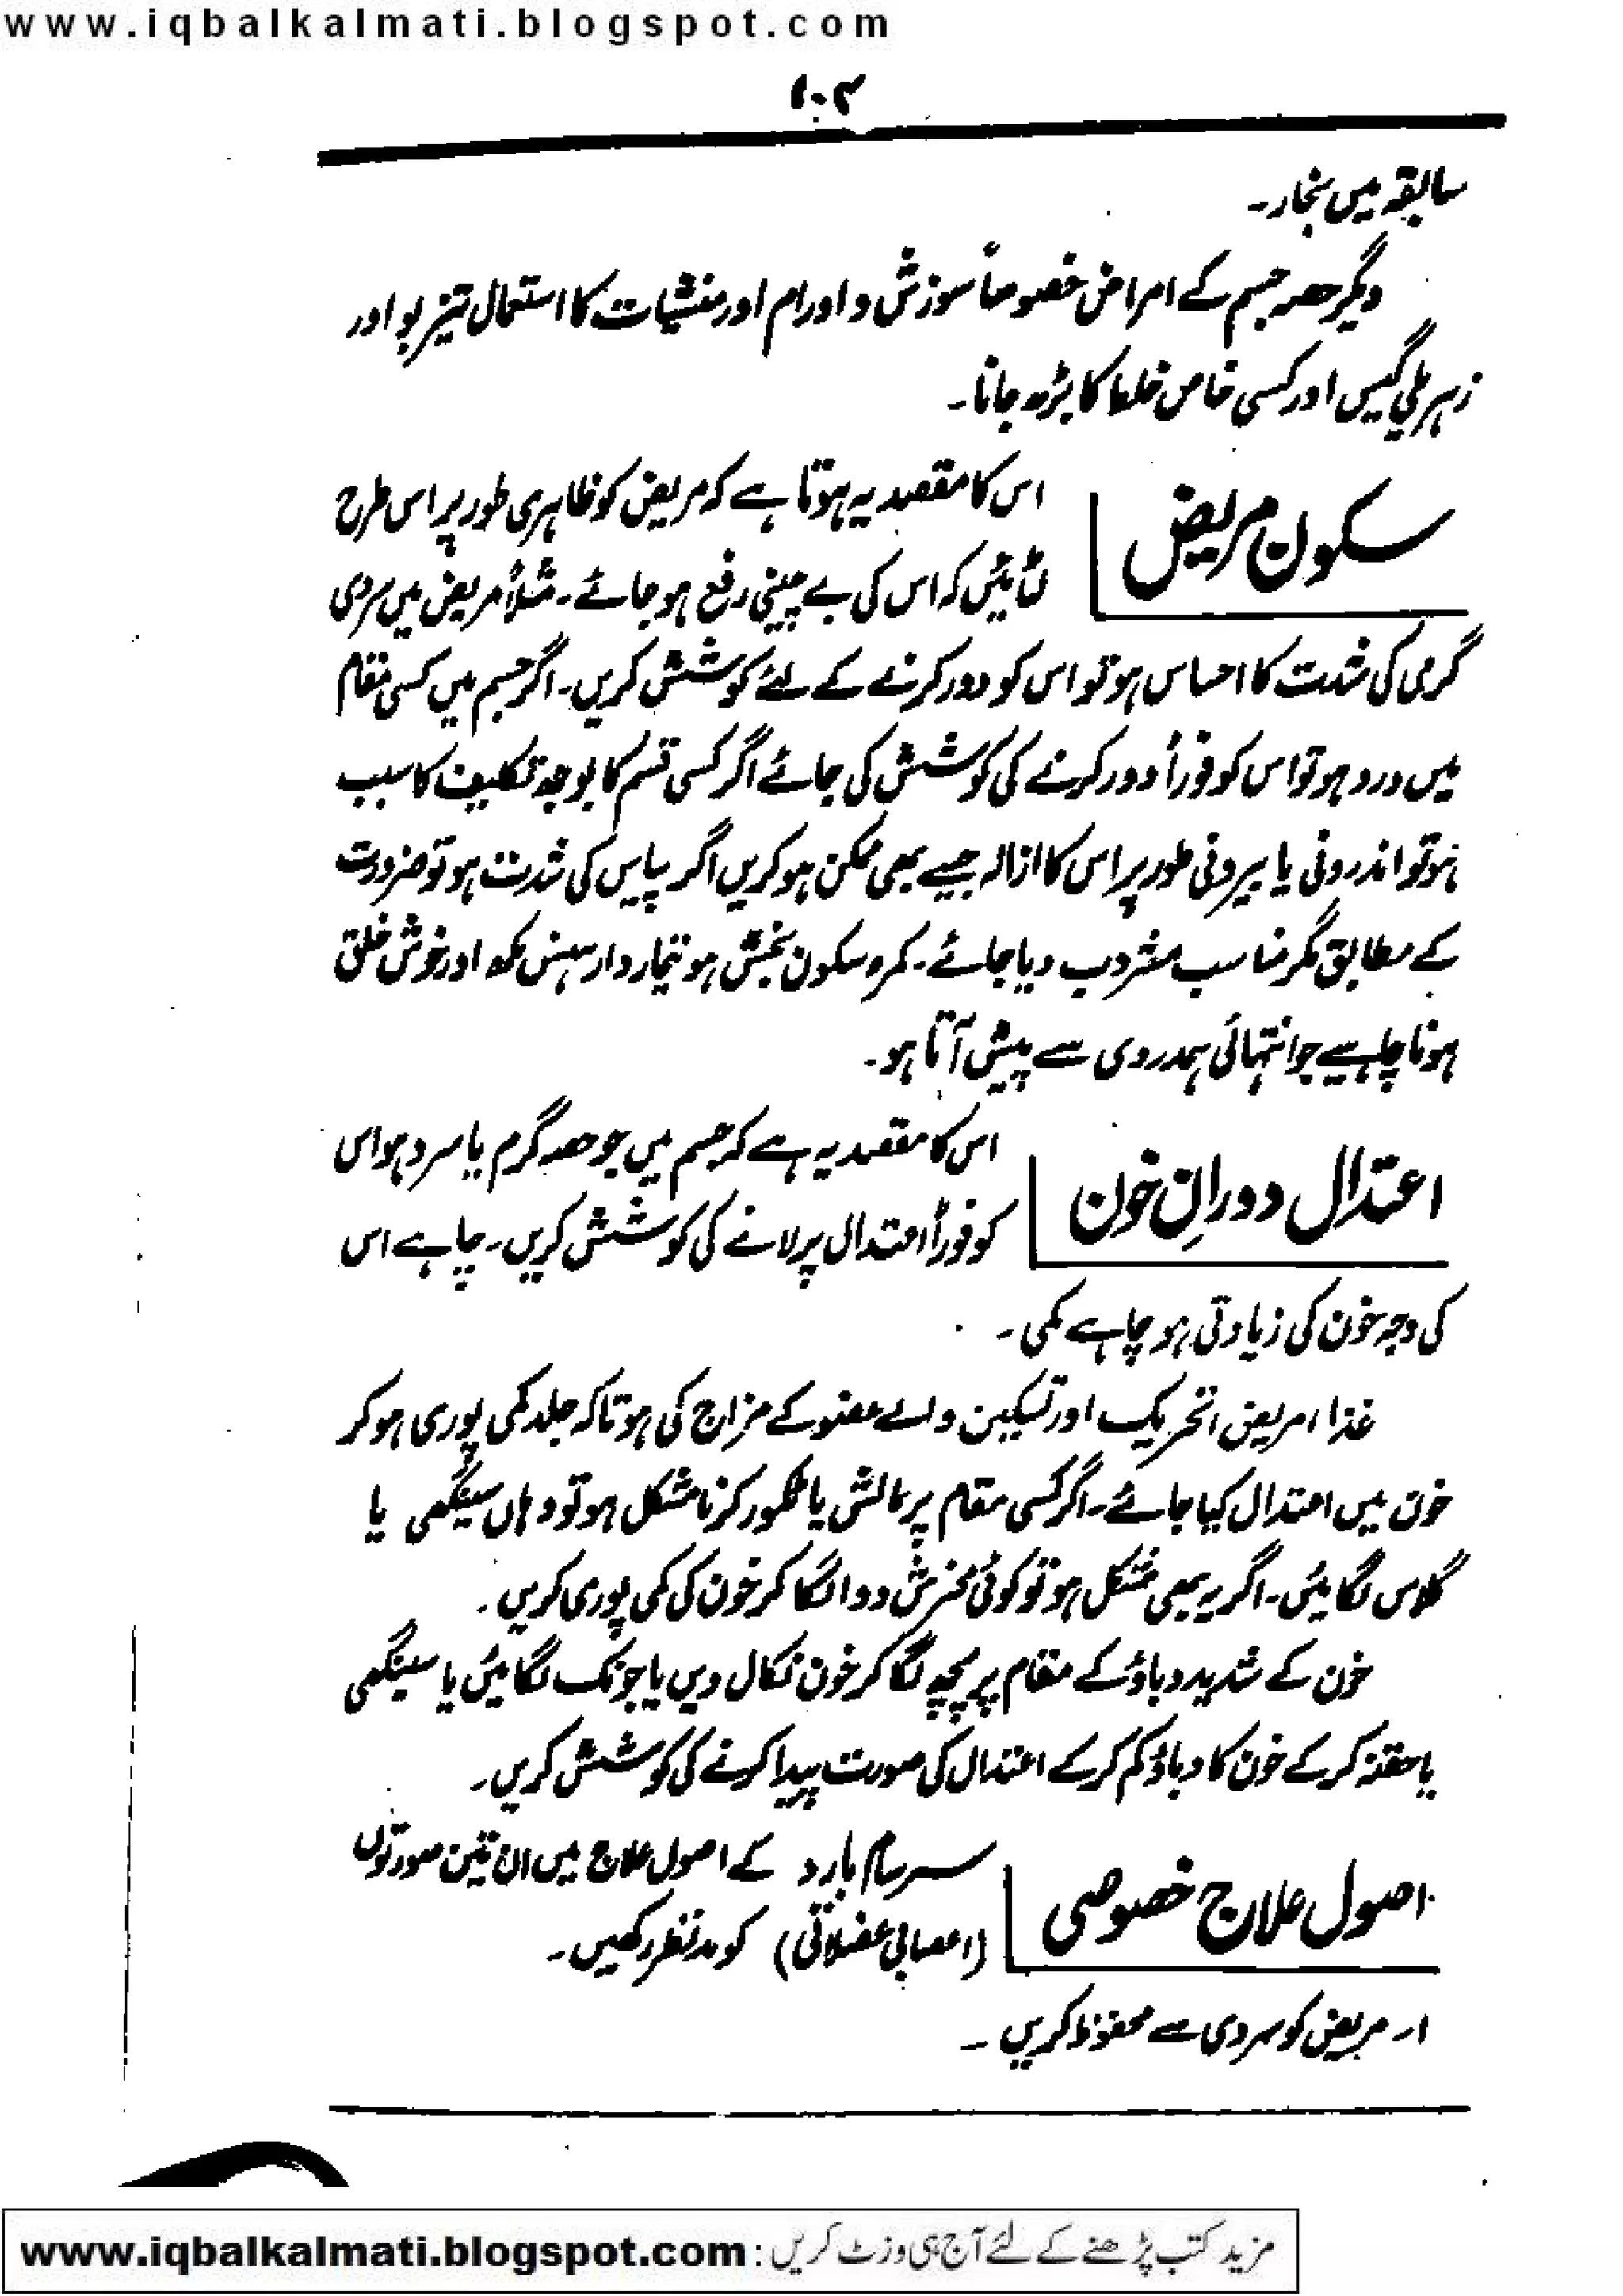 www.iqbalkalmati.blogspot.com
۶۰۳
سابقہ میں بخار۔
دیگر حصہ جسم کے امراض خصوصاً سوزش و اورام اور منشیات کا استعمال تیز بو اور
زہریلی گیس اور کسی خاص خلط کا بڑھ جانا۔
سکون مریض
اس کا مقصد یہ ہوتا ہے کہ مریض کو ظاہری طور پر اس طرح
لٹائیں کہ اس کی بے چینی رفع ہو جائے۔ مثلاً مریض میں سردی
گرمی کی شدت کا احساس ہو تو اس کو دور کرنے کے لئے کوشش کریں۔ اگر جسم میں کسی مقام
میں درد ہو تو اس کو فوراً دور کرنے کی کوشش کی جائے اگر کسی قسم کا بوجھ تکلیف کا سبب
ہو تو اندرونی یا بیرونی طور پر اس کا ازالہ جیسے بھی ممکن ہو کریں اگر پیاس کی شدت ہو تو ضرورت
کے مطابق مگر مناسب مشروب دیا جائے۔ کمرہ سکون بخش ہو تیماردار ہنس مکھ اور خوش خلق
ہونا چاہیے جو انتہائی ہمدردی سے پیش آتا ہو۔
اعتدال دورانِ خون
اس کا مقصد یہ ہے کہ جسم میں جو حصہ گرم یا سرد ہو اس
کو فوراً اعتدال پر لانے کی کوشش کریں۔ چاہے اس
کی وجہ خون کی زیادتی ہو چاہے کمی۔
غذا، مریض، تحریک اور تسکین والے عضو کے مزاج کی ہو تاکہ جلد کمی پوری ہو کر
خون میں اعتدال کیا جائے۔ اگر کسی مقام پر مالش یا ٹکور کرنا مشکل ہو تو وہاں سینگھی یا
گلاس لگائیں۔ اگر یہ بھی مشکل ہو تو کوئی مخرش دوا لگا کر خون کی کمی پوری کریں۔
خون کے شدید دباؤ کے مقام پر پچھ لگا کر خون نکال دیں یا جونک لگائیں یا سینگھی
یا حقنہ کر کے خون کا دباؤ کم کر کے اعتدال کی صورت پیدا کرنے کی کوشش کریں۔
اصول علاج خصوصی
سرسام بارد کے اصول علاج میں ان تین صورتوں
(اعصابی عضلاتی) کو مدنظر رکھیں۔
۱۔ مریض کو سردی سے محفوظ کریں۔
مزید کتب پڑھنے کے لئے آج ہی وزٹ کریں : www.iqbalkalmati.blogspot.com